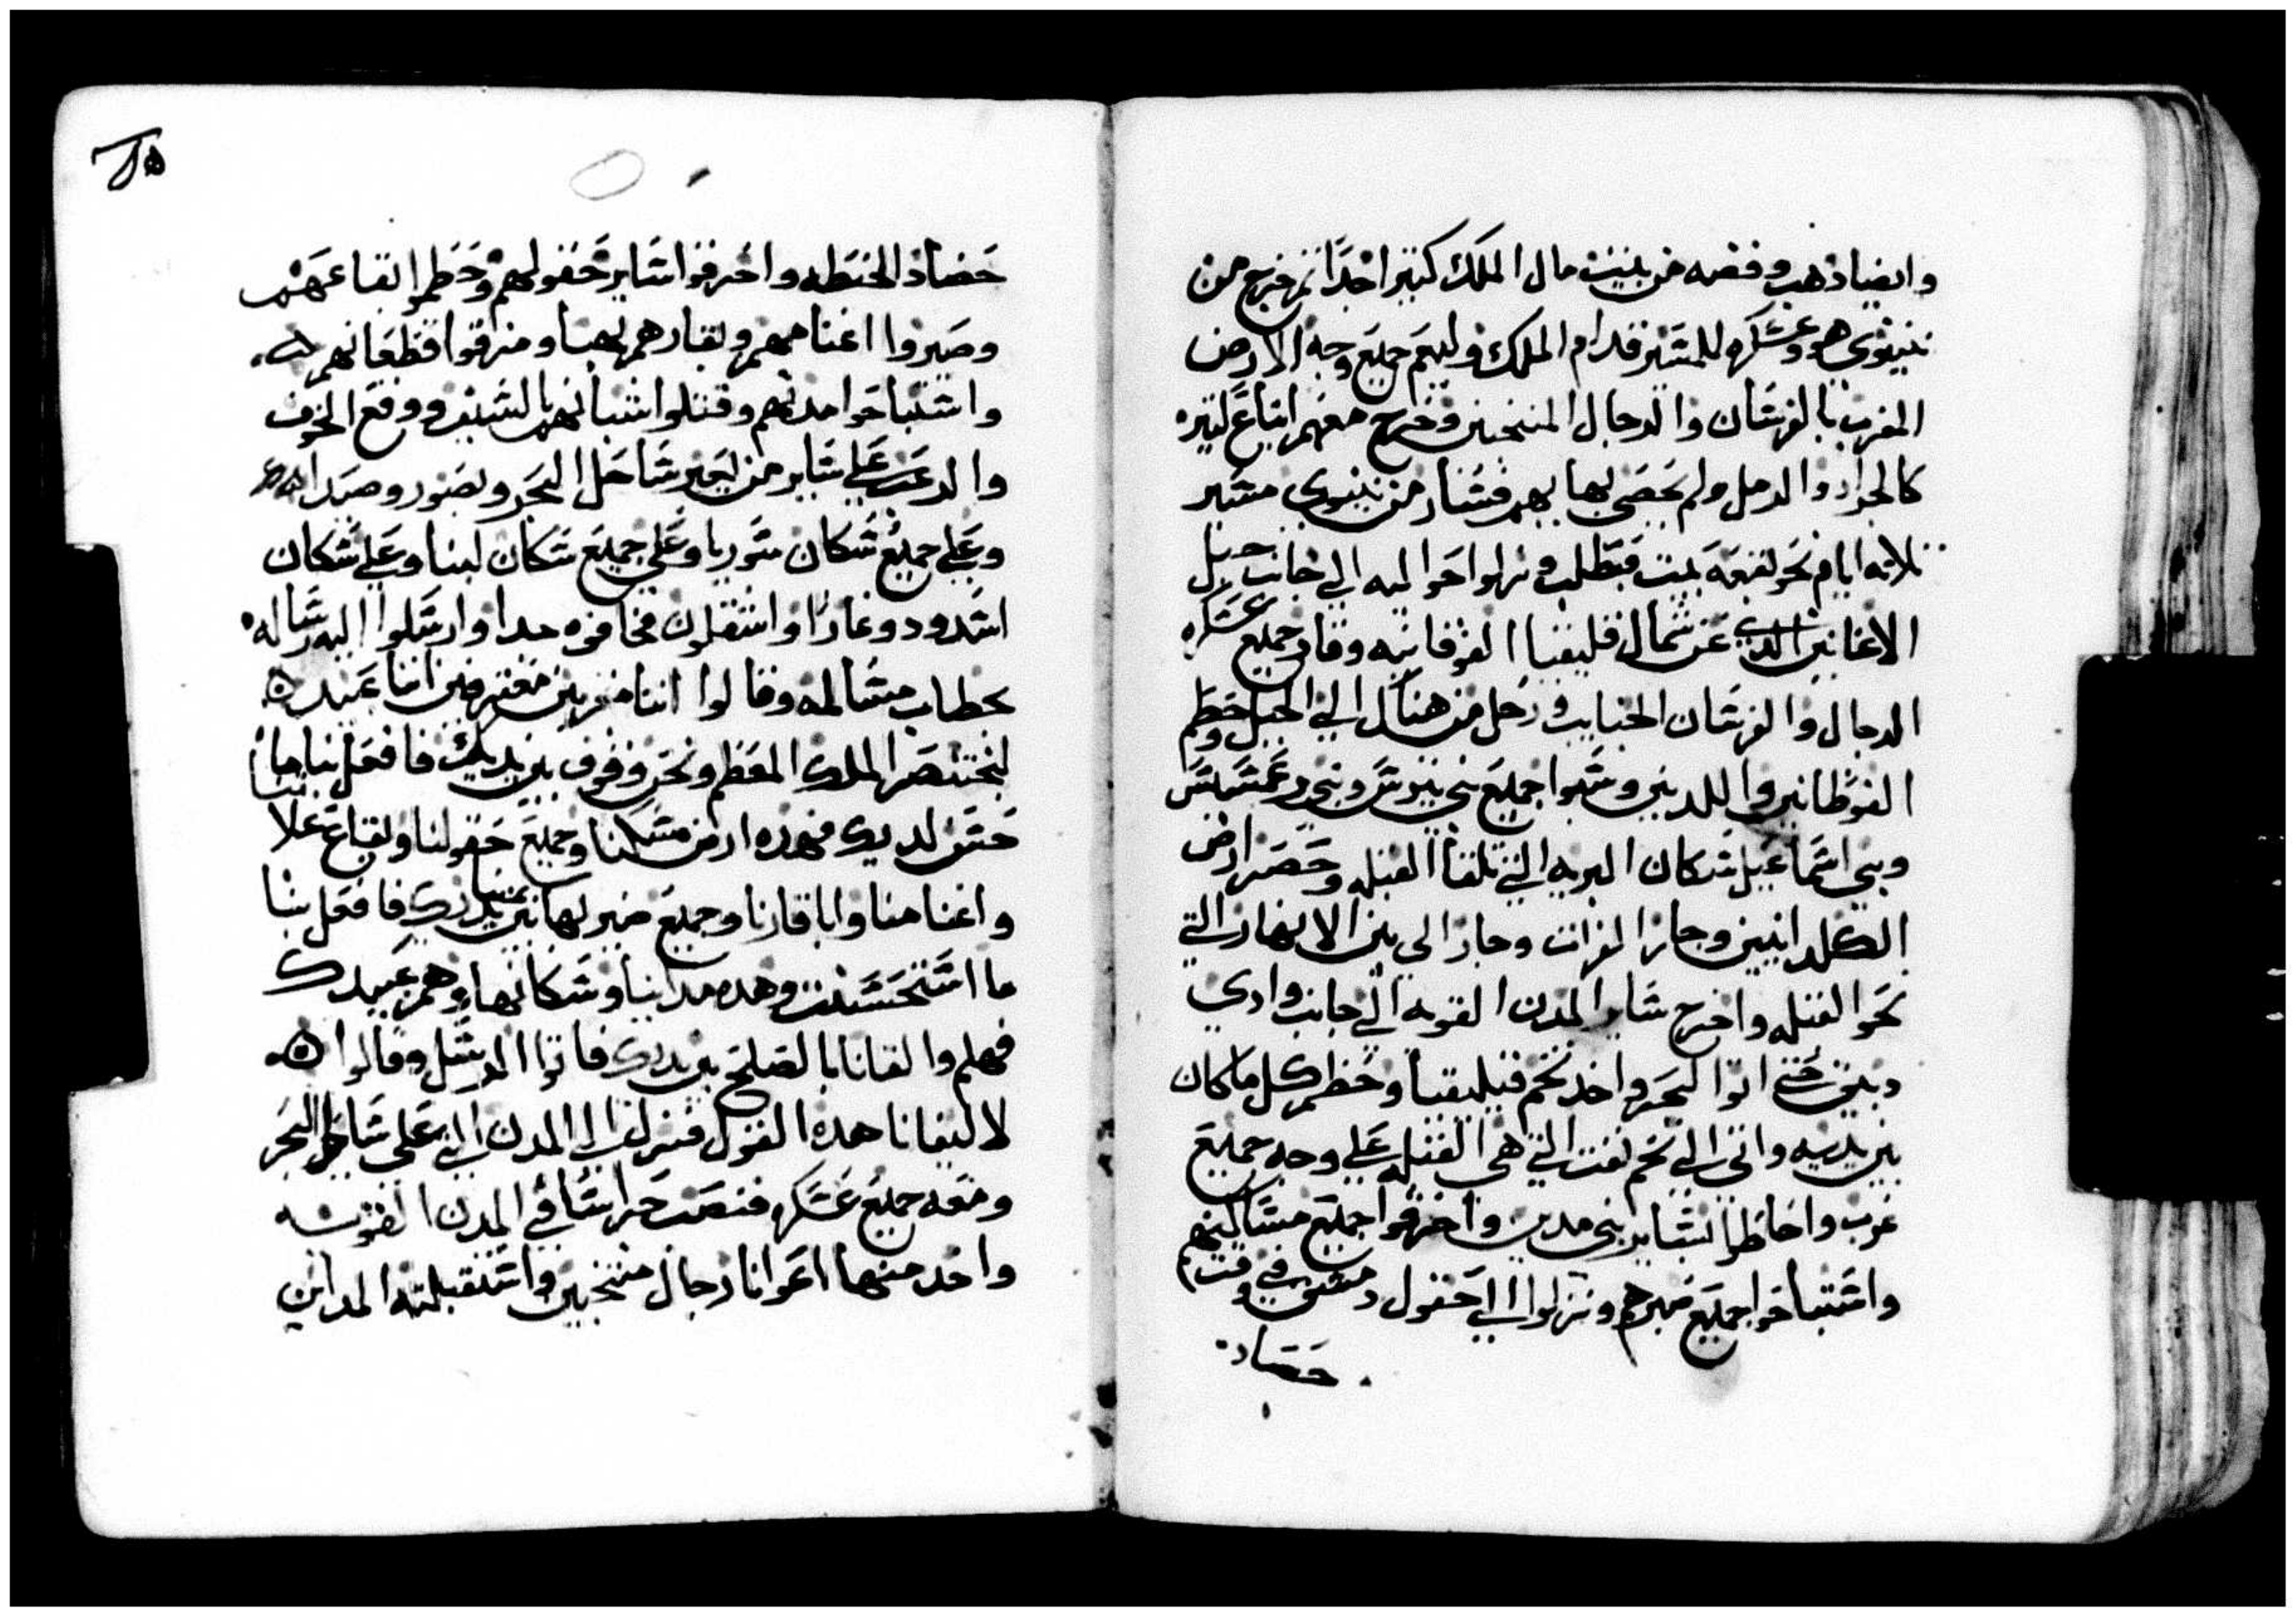 وايضا دهب وفضه من بيت مال الملك كتيرا جدا تم خرج من
نينوي هو وعسكره للمسير قدام الملك وليعم جميع وجه الارض
المغرب بالفرسان والرجال المنتخبين وخرج معهم اتباع كتيره
كالجراد والرمل ولم يحصي بها بهم فسار من نينوي مسير
تلاته ايام نحو بقعة بيت قبطلت ونزلوا حواليه الي جانب جبل
الاعانين الدي عن شمال قليقيا الفوقانيه وقاد جميع عسكره
الرجال والفرسان الجنايب ورحل من هناك الي الجبل وحطم
الفوطانيم واللديين وسبوا جميع بني بيرسس وبني رعمسسس
وبني اسماعيل سكان البريه التي تلقا القبله وحصر ارض
الكلدانيين وجاز الفرات وجاز الي بين الانهار التي
نحو القبله واخرج ساير المدن القويه الي جانب وادي
حتي اتوا البحر واخد تخم قيليقيا وحطم كل ما كان
بين يديه واتي الي تخم يفت التي هي القبله علي وجه جميع
عرب واحاطوا بساير بني مدين واحرقوا جميع مساكنهم
واستباحوا جميع صيرهم ونزلوا الي حقول دمشق في وقت
حصاد
٢٥
حصاد الحنطه واحرقوا ساير حقولهم وحطموا بقاعهم
وصيروا اغنامهم وبقارهم نهبا ومزقوا قطعانهم
واستباحوا مدنهم وقتلوا شبانهم بالسيف ووقع الخوف
والرعب علي ساير من يعبر ساحل البحر وبصور وصيدا
وعلي جميع سكان سوريا وعلي جميع سكان لبنا وعلي سكان
اسدود وغازا واستقلون فخافوه جدا وارسلوا اليه رساله
بخطاب مسالمه وقالوا اننا مقربين معترفين اننا عبيد
لبختنصر الملك المعظم ونحن وقوف بين يديك فافعل بنا ما
حسن لديك فهده ارض مسكننا وجميع حقولنا وبقاع غلاتنا
واغنامنا واباقارنا وجميع صيرنا بين يديك فافعل بنا
ما استحسنت وهده مداينا وسكانها وهم عبيدك
فهلم والقانا بالصلح بين يديك فاتوا الرسل وقالوا
لاليفانا هده القول فنزل الي المدن التي علي ساحل البحر
ومعه جميع عسكره فنصب حراسا في المدن القويه
واخد منها اعوانا رجال منتخبين واستقبلته المداين